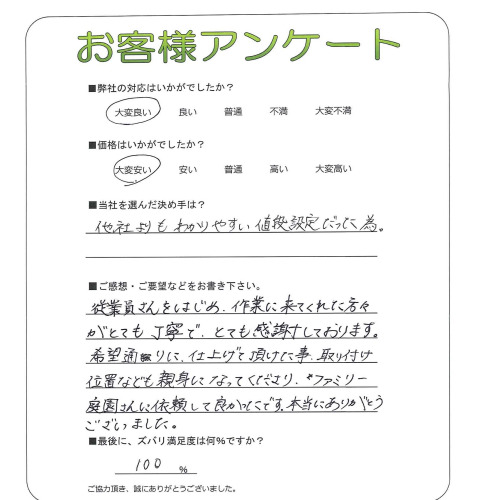 お客様アンケート
■弊社の対応はいかがでしたか？
大変良い 良い 普通 不満 大変不満
■価格はいかがでしたか？
大変安い 安い 普通 高い 大変高い
■当社を選んだ決め手は？
他社よりもわかりやすい値段設定だった為。
■ご感想・ご要望などをお書き下さい。
従業員さんをはじめ、作業に来てくれた方々
がとても丁寧で、とても感謝しております。
希望通りに、仕上げて頂けた事、取り付け
位置なども親身になってくださり、ファミリー
庭園さんに依頼して良かったです。本当にありがとう
ございました。
■最後に、ズバリ満足度は何%ですか？
100 %
ご協力頂き、誠にありがとうございました。